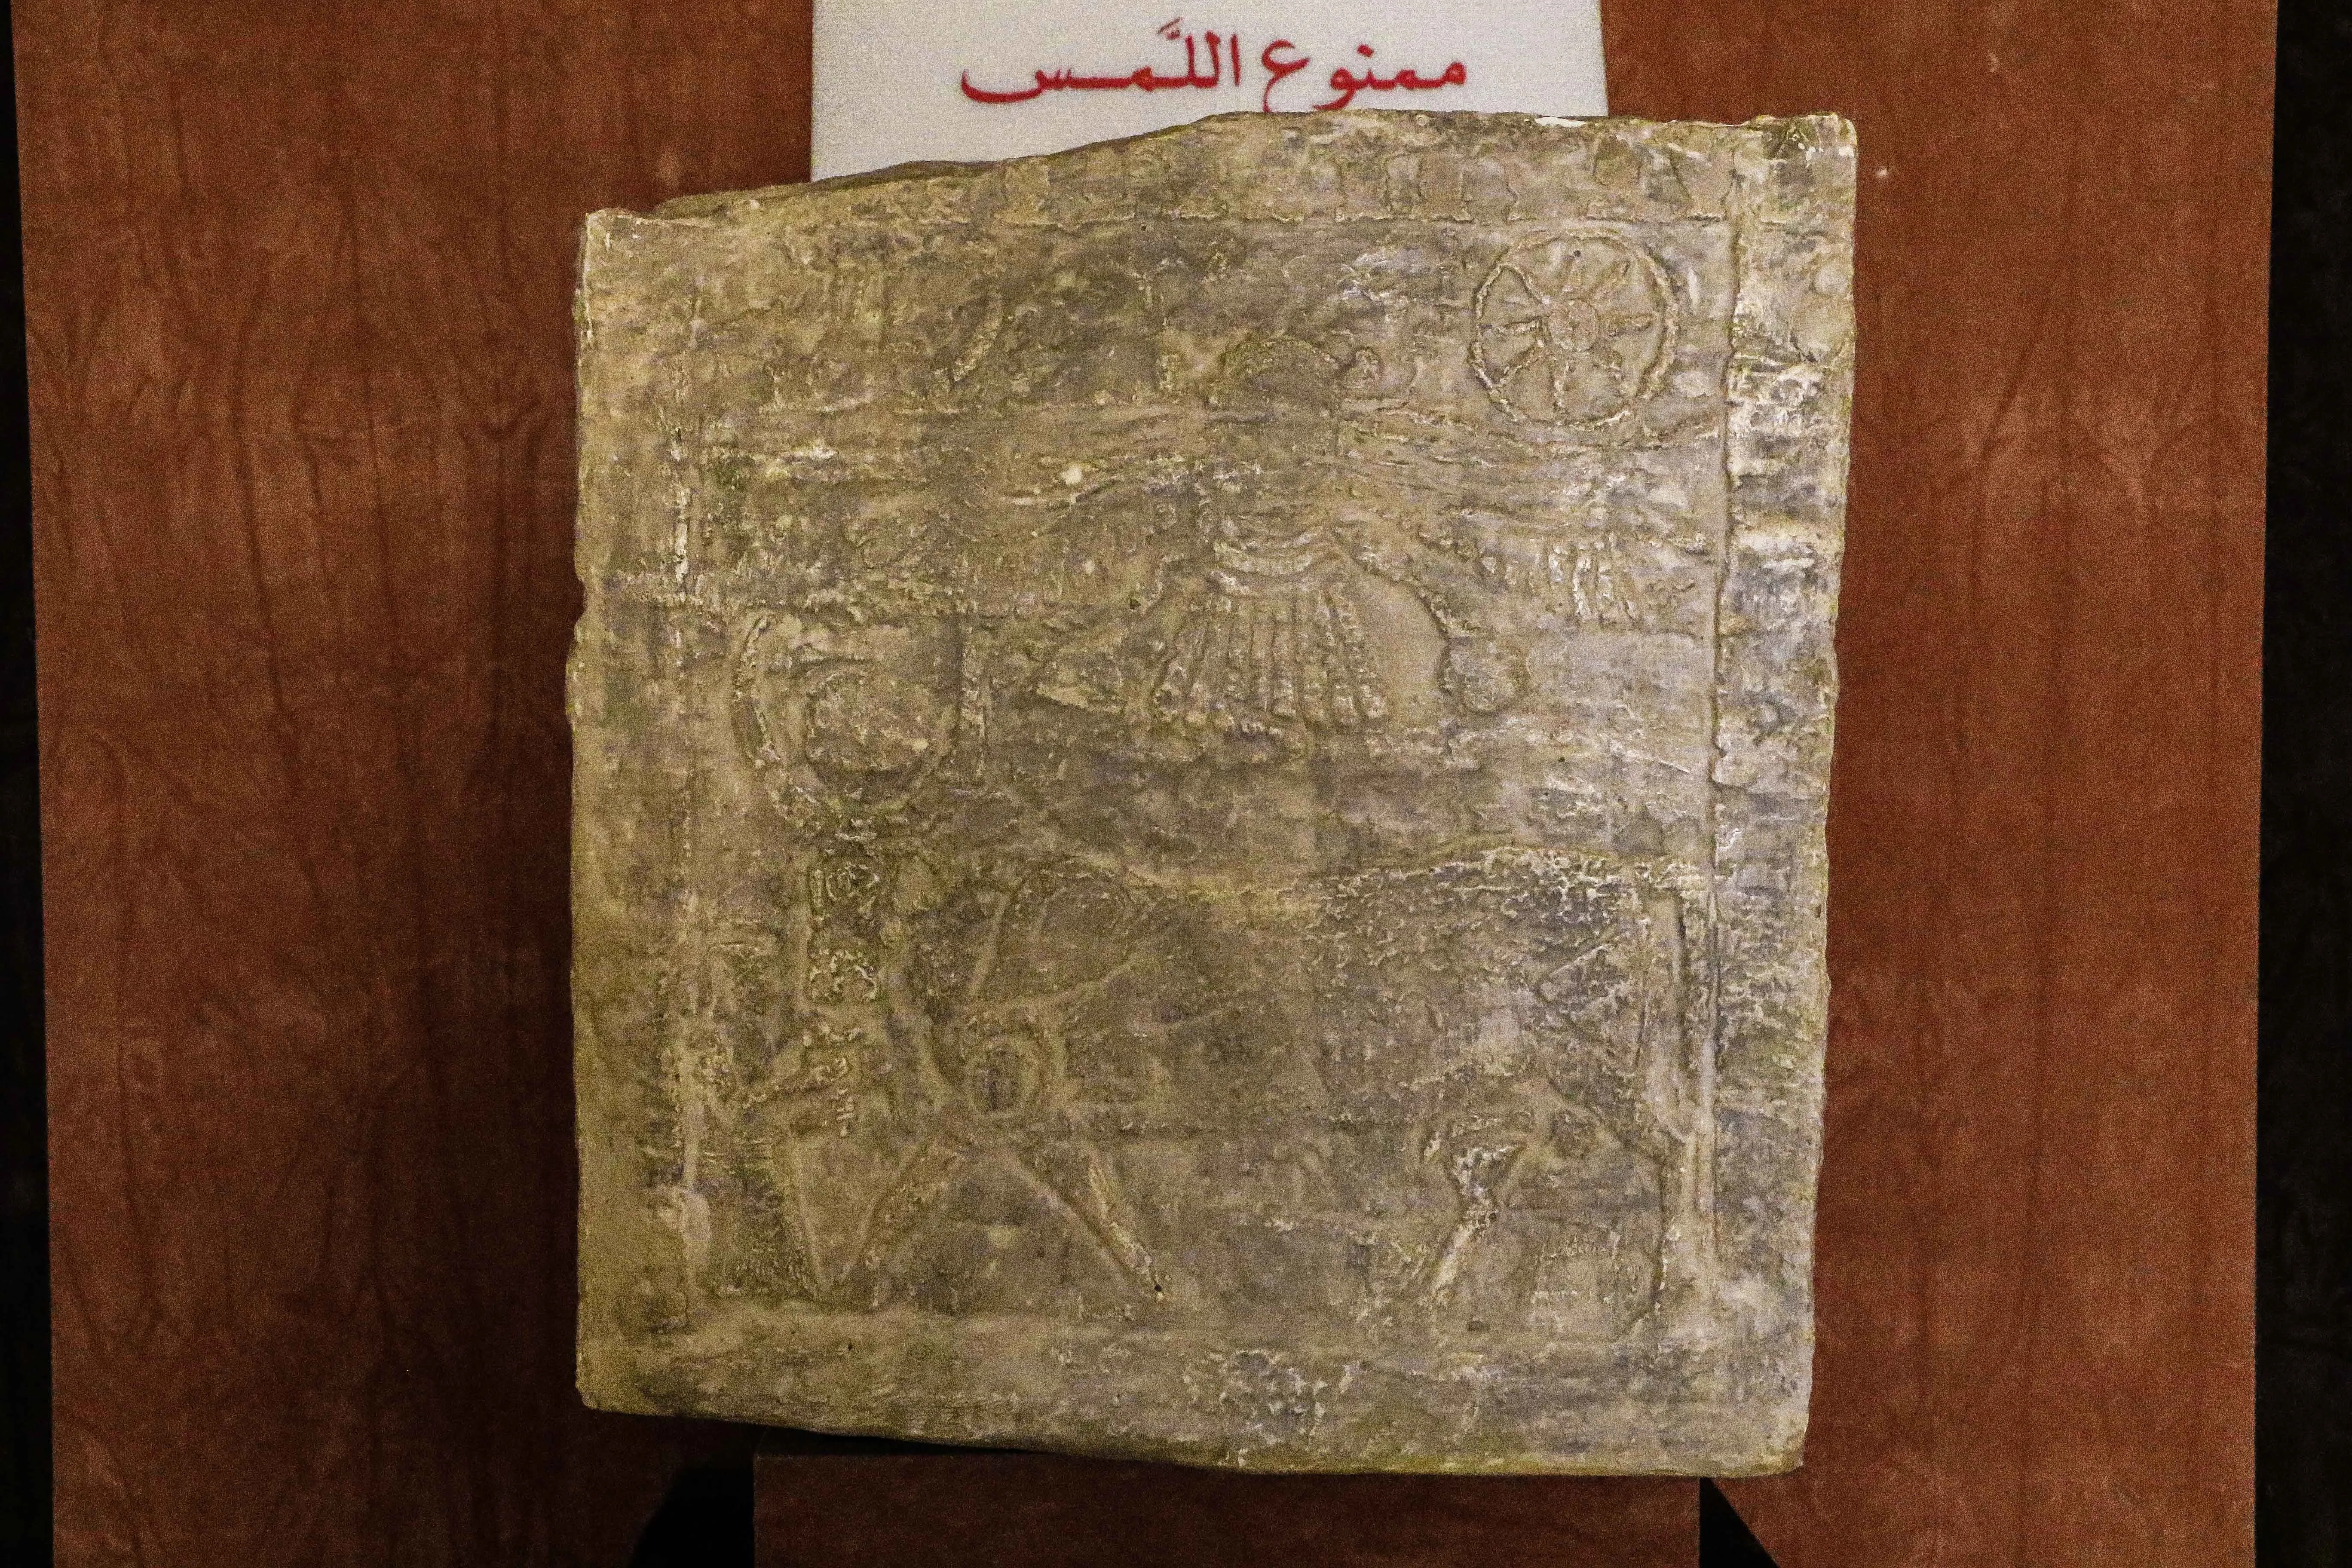 ممنوع اللَّمس